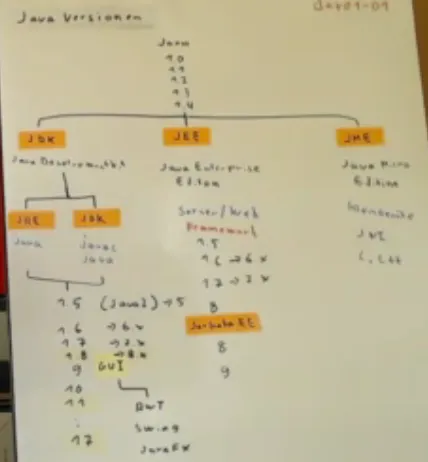 Java Versionen
day01-01
Java
1.0
1.1
1.2
1.3
1.4
JDK
JEE
JME
Java Enterprise
Edition
Java Micro
Edition
JRE
JDK
Java
javac
java
Server/Web
Framework
1.5
1.6 → 6.x
1.7 → 7.x
8
Jakarta EE
8
9
JNI
C, C++
1.5 (Java2) → 5
1.6 → 6.x
1.7 → 7.x
1.8 → 8.x
9 GUI
10
11
:
17
AWT
Swing
JavaFX